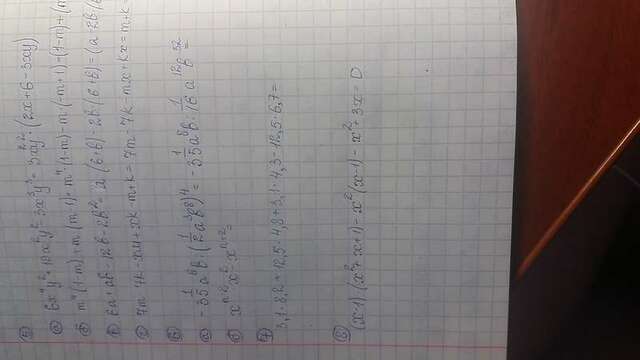 5
а 6x⁴y²+12x²y²-3x³y³= 3x²y²·(2x+6-3xy)
б m⁴(1-m)+m(m-1)= m⁴·(1-m)-m·(-m+1)=(1-m)+(m
в 6a+ab-12b-2b²= a(6+b)-2b·(6+b)=(a-2b)·(6
г 7m-7k-xm+xk-m+k= 7m-7k-mx+kx=m+k=
6
а -3 1/5 a⁸b·(1/2 a³b⁸)⁴= -3 1/5 a⁸b·1/16 a¹²b³²=
б xⁿ⁻²x²-xⁿ⁺²=
7
3,1·8,2+12,5·4,8+3,1·4,3-12,5·6,7=
8
(x-1)·(x²+x+1)-x²(x-1)-x²+3x=0